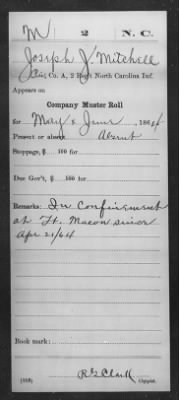 M 2 N.C.
Joseph J. Mitchell
Co. A, 2 Reg't North Carolina Inf.
Appears on
Company Muster Roll
for May & June, 1864
Present or absent Absent
Stoppage, $ 100 for
Due Gov't, $ 100 for
Remarks: In confinement
at Ft. Macon since
Apr 21/64
Book mark:
R G Clark
(358) Copyist.